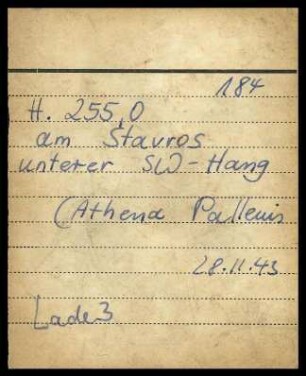 184
H. 255,0
am Stavros
unterer SW-Hang
(Athena Pallenis
28.11.43
Lade 3